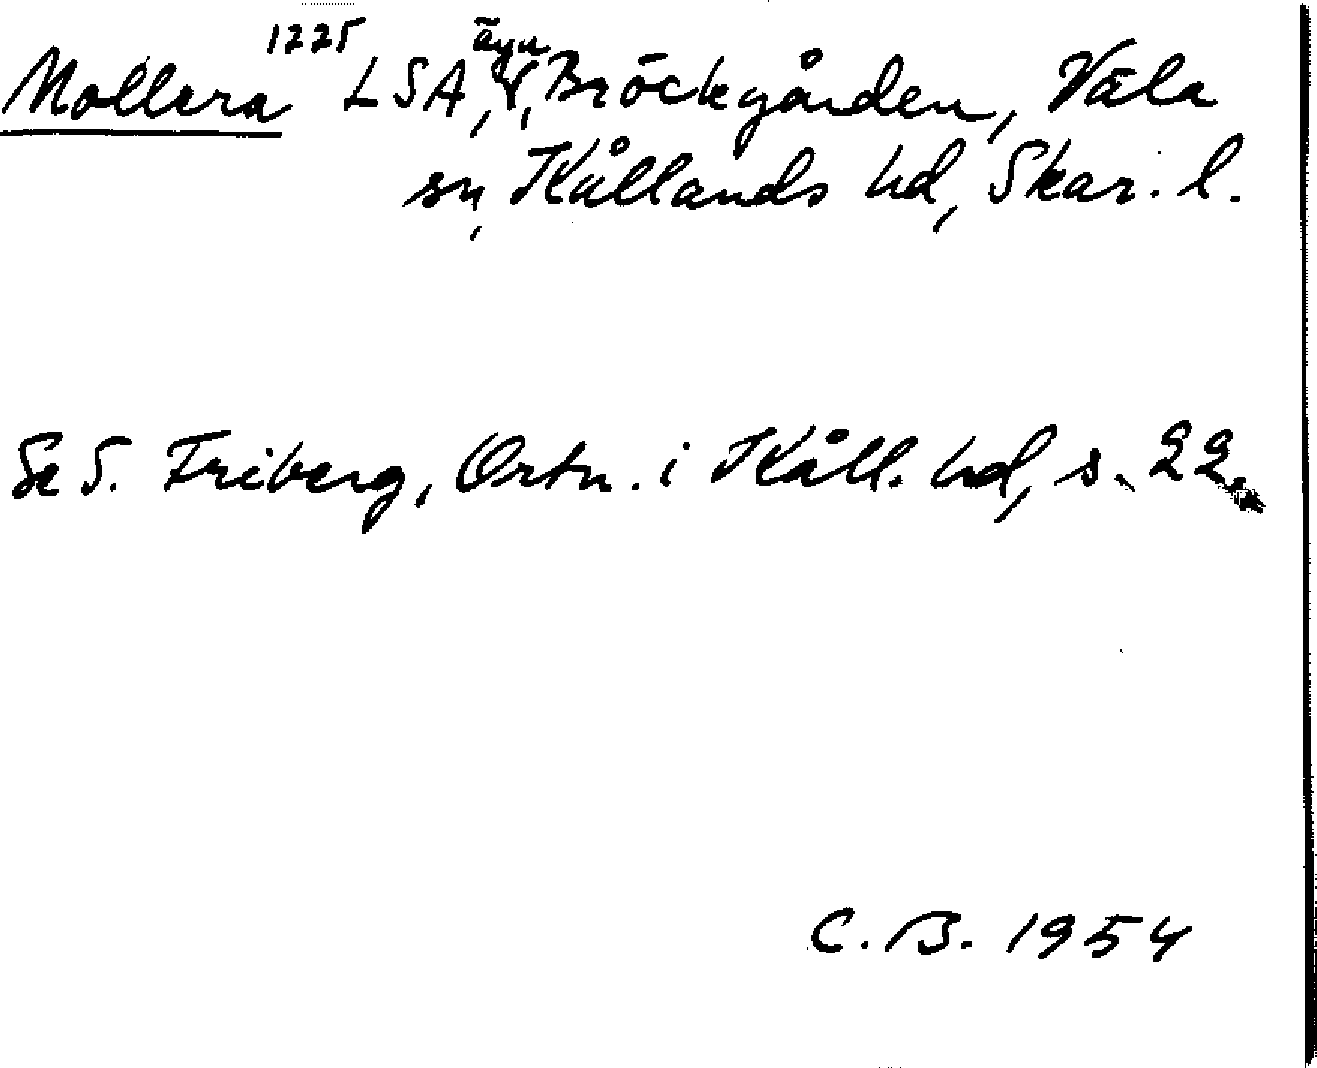 Mollera 1225 LSA, ägn, Bröckgården, Väla
sn, Kållands hd, Skar. l.
Se S. Friberg, Ortn. i Kåll. hd, s. 22.
C. B. 1954